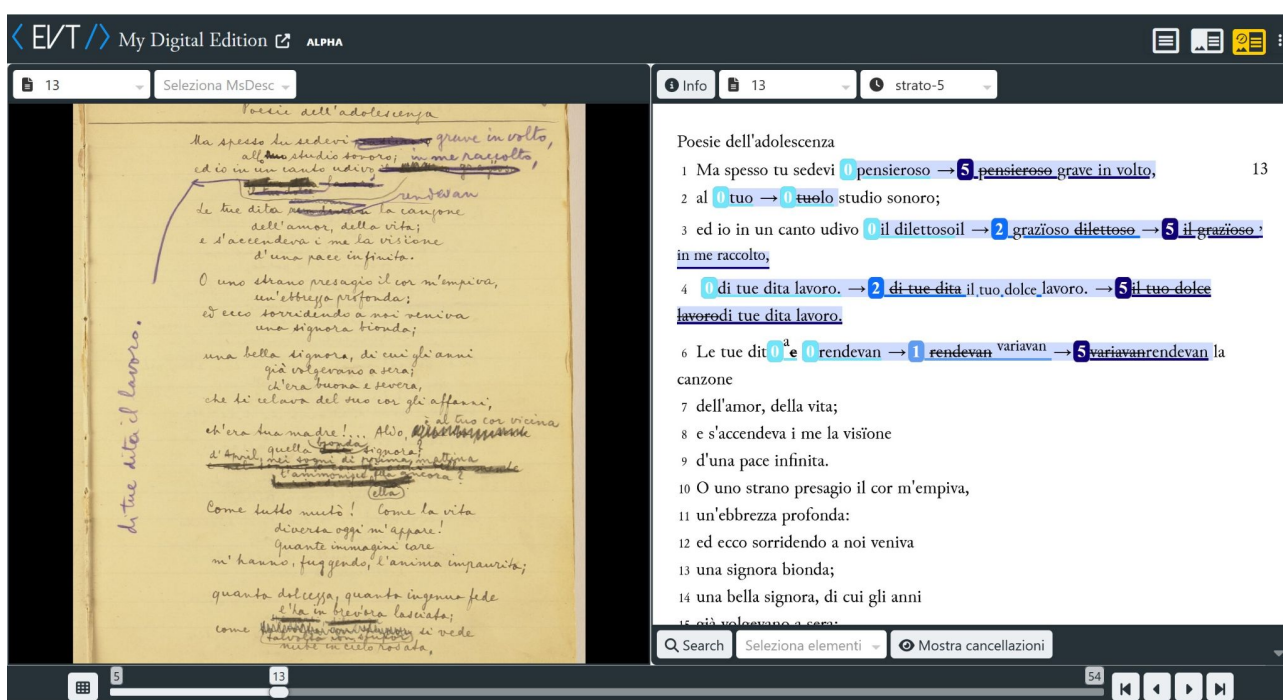 EVT My Digital Edition ALPHA
13
Seleziona MsDesc
Poesie dell'adolescenza
Ma spesso tu sedevi grave in volto,
studio sonoro; in me raccolto,
ed io in un canto udivo
rendevan
Le tue dita la canzone
dell'amor, della vita;
e s'accendeva i me la visïone
d'una pace infinita.
O uno strano presagio il cor m'empiva,
un'ebbrezza profonda;
ed ecco sorridendo a noi veniva
una signora bionda;
una bella signora, di cui gli anni
già volgevano a sera;
ch'era buona e severa,
che ti celava del suo cor gli affanni,
al tuo cor vicina
ch'era tua madre!... Aldo,
bionda
quella signora?
d'April, nei sogni di prima mattina
l'ammonisce ancora?
(ella)
Come tutto mutò! Come la vita
diversa oggi m'appare!
Quante immagini care
m'hanno, fuggendo, l'anima impaurita;
quanta dolcezza, quanta ingenua fede
l'ha in brev'ora lasciata;
come si vede
talvolta con stupor
nube in cielo rosata,
di tue dita il lavoro.
Info
13
strato-5
Poesie dell'adolescenza
1 Ma spesso tu sedevi 0 pensieroso → 5 pensieroso grave in volto, 13
2 al 0 tuo → 0 tuolo studio sonoro;
3 ed io in un canto udivo 0 il dilettosoil → 2 grazïoso dilettoso → 5 il grazïoso ,
in me raccolto,
4 0 di tue dita lavoro. → 2 di tue dita il tuo dolce lavoro. → 5 il tuo dolce
lavorodi tue dita lavoro.
6 Le tue dit 0 a e 0 rendevan → 1 rendevan variavan → 5 variavanrendevan la
canzone
7 dell'amor, della vita;
8 e s'accendeva i me la visïone
9 d'una pace infinita.
10 O uno strano presagio il cor m'empiva,
11 un'ebbrezza profonda:
12 ed ecco sorridendo a noi veniva
13 una signora bionda;
14 una bella signora, di cui gli anni
15 già volgevano a sera;
Search
Seleziona elementi
Mostra cancellazioni
5
13
54